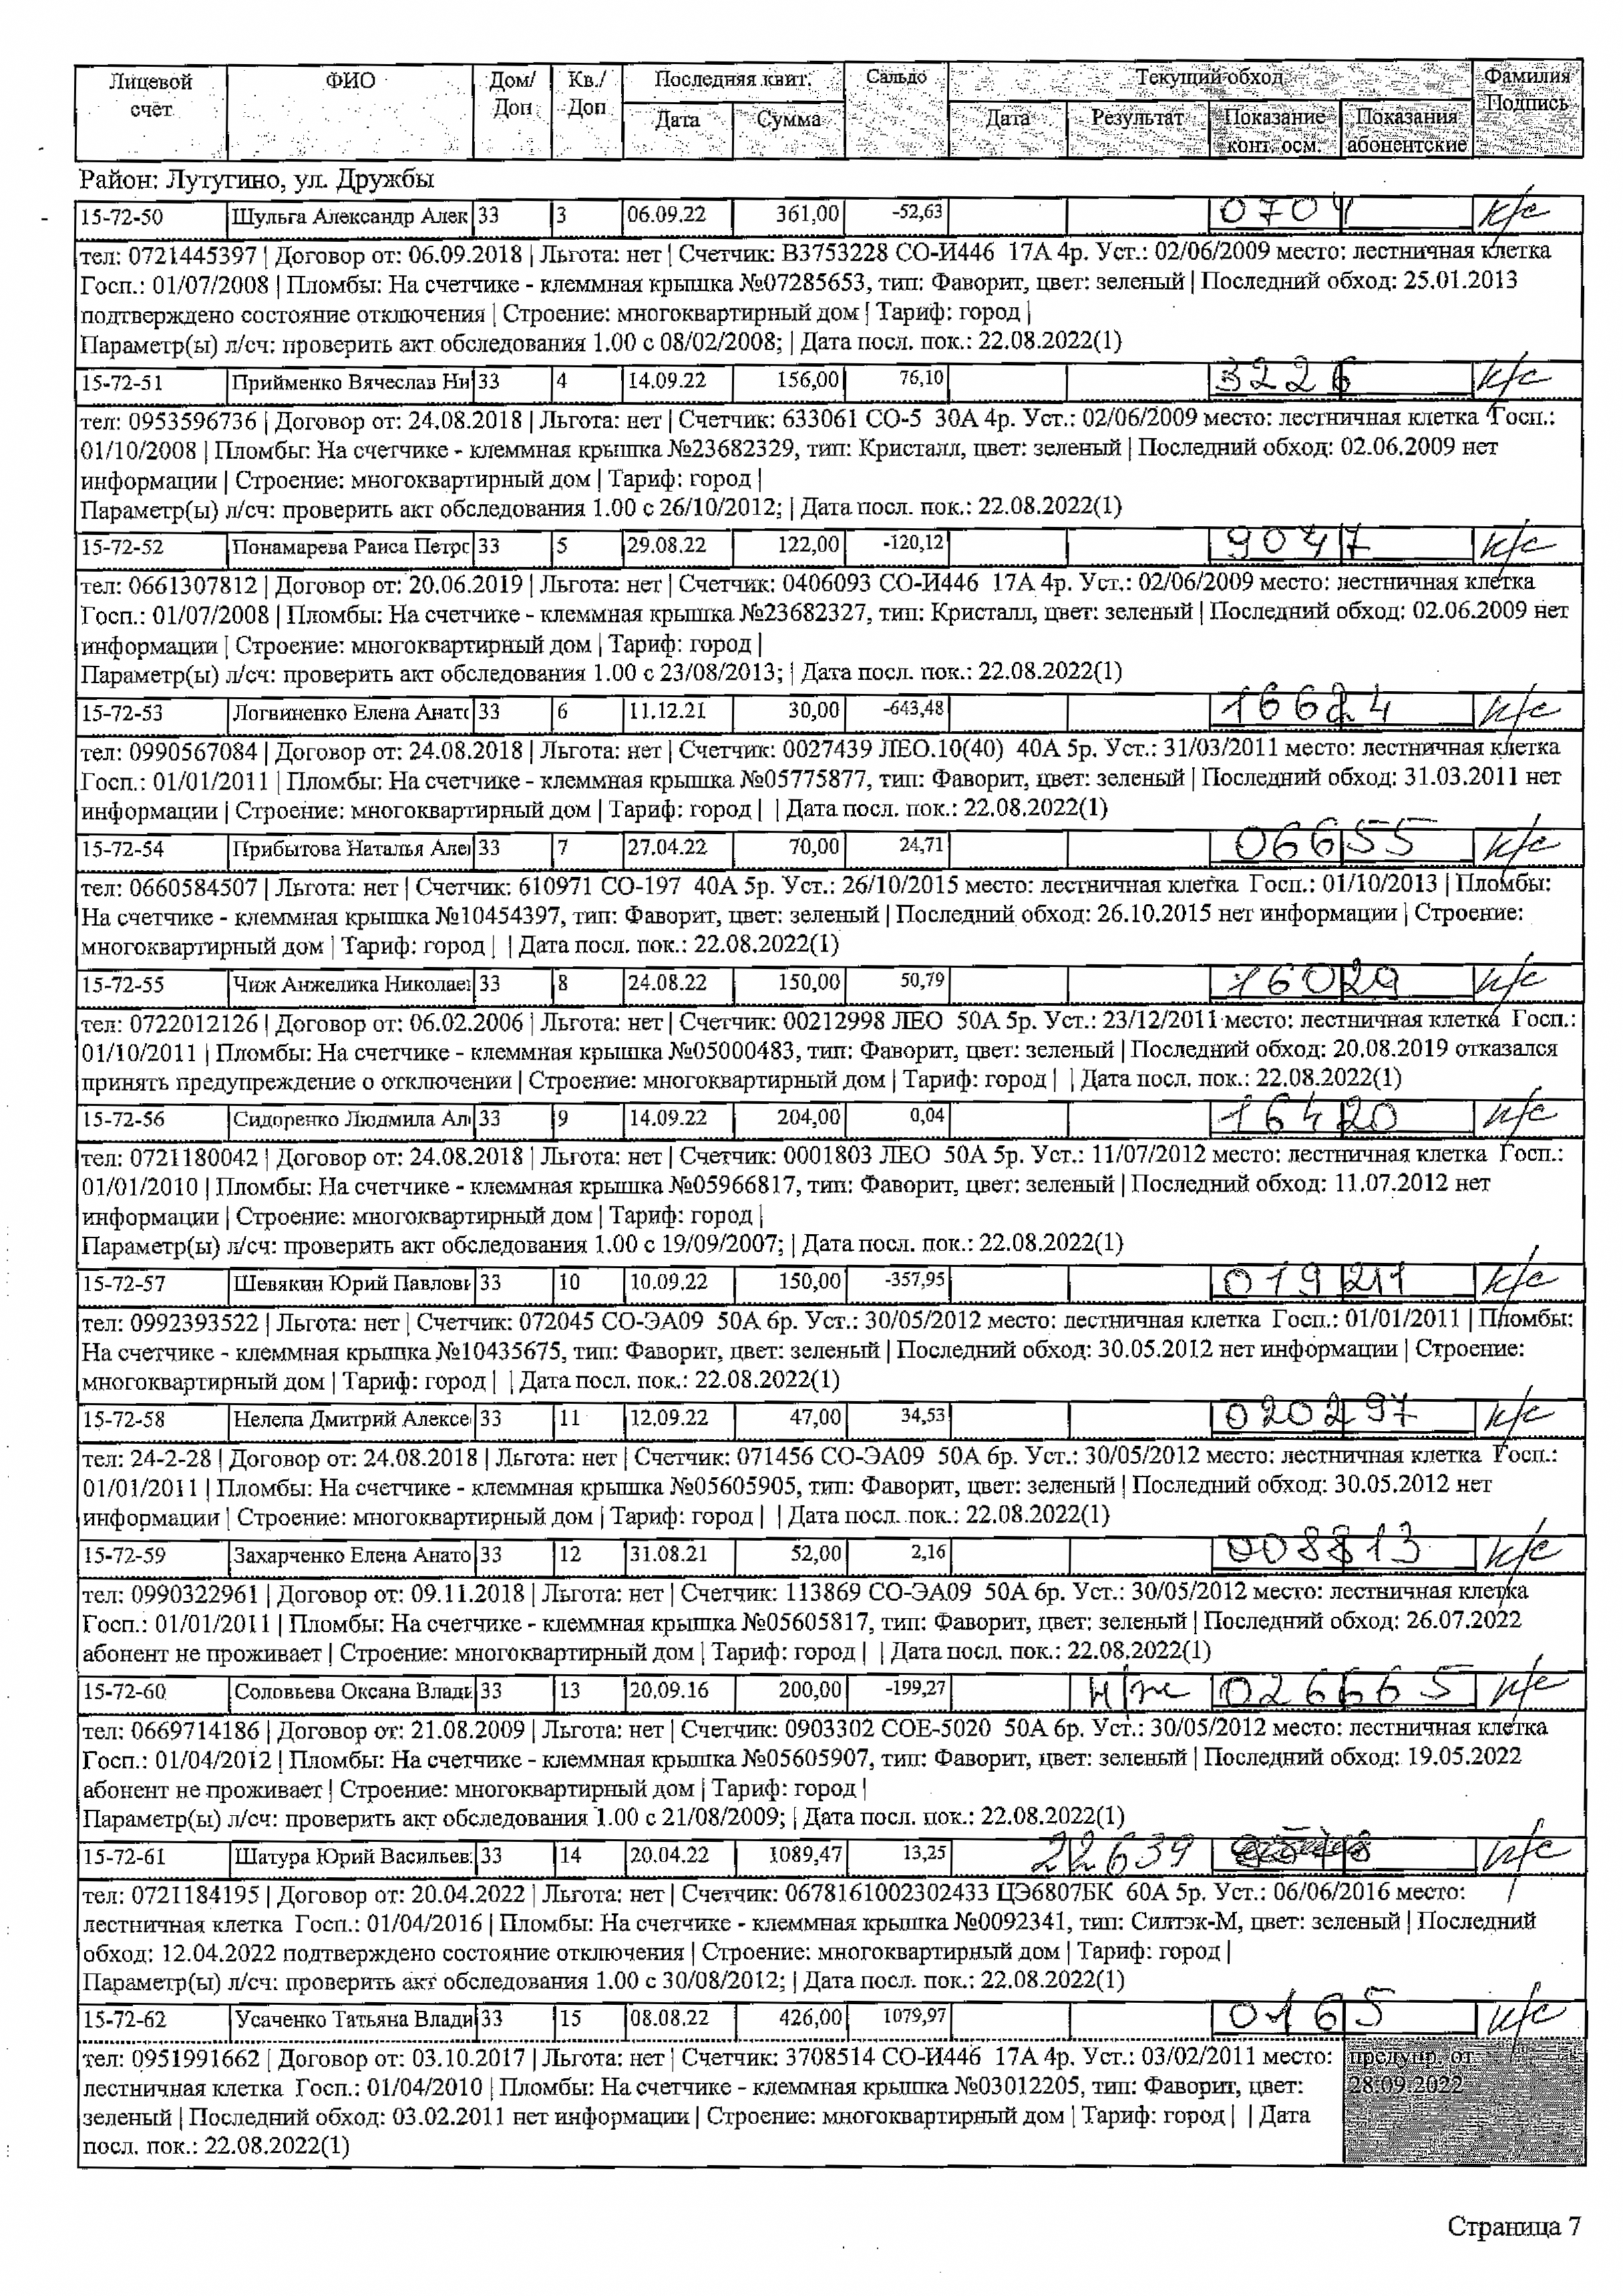 Лицевой счёт ФИО Дом/Доп Кв./Доп Последняя квит. Сальдо Текущий обход Фамилия Подпись
Дата Сумма Дата Результат Показание конт. осм. Показания абонентские
Район: Лутугино, ул. Дружбы
15-72-50 Шульга Александр Алек 33 3 06.09.22 361,00 -52,63 0704 к/с
тел: 0721445397 | Договор от: 06.09.2018 | Льгота: нет | Счетчик: В3753228 СО-И446 17А 4р. Уст.: 02/06/2009 место: лестничная клетка
Госп.: 01/07/2008 | Пломбы: На счетчике - клеммная крышка №07285653, тип: Фаворит, цвет: зеленый | Последний обход: 25.01.2013
подтверждено состояние отключения | Строение: многоквартирный дом | Тариф: город |
Параметр(ы) л/сч: проверить акт обследования 1.00 с 08/02/2008; | Дата посл. пок.: 22.08.2022(1)
15-72-51 Прийменко Вячеслав Ни 33 4 14.09.22 156,00 76,10 3226 к/с
тел: 0953596736 | Договор от: 24.08.2018 | Льгота: нет | Счетчик: 633061 СО-5 30А 4р. Уст.: 02/06/2009 место: лестничная клетка Госп.:
01/10/2008 | Пломбы: На счетчике - клеммная крышка №23682329, тип: Кристалл, цвет: зеленый | Последний обход: 02.06.2009 нет
информации | Строение: многоквартирный дом | Тариф: город |
Параметр(ы) л/сч: проверить акт обследования 1.00 с 26/10/2012; | Дата посл. пок.: 22.08.2022(1)
15-72-52 Понамарева Раиса Петро 33 5 29.08.22 122,00 -120,12 9047 к/с
тел: 0661307812 | Договор от: 20.06.2019 | Льгота: нет | Счетчик: 0406093 СО-И446 17А 4р. Уст.: 02/06/2009 место: лестничная клетка
Госп.: 01/07/2008 | Пломбы: На счетчике - клеммная крышка №23682327, тип: Кристалл, цвет: зеленый | Последний обход: 02.06.2009 нет
информации | Строение: многоквартирный дом | Тариф: город |
Параметр(ы) л/сч: проверить акт обследования 1.00 с 23/08/2013; | Дата посл. пок.: 22.08.2022(1)
15-72-53 Логвиненко Елена Анато 33 6 11.12.21 30,00 -643,48 16624 к/с
тел: 0990567084 | Договор от: 24.08.2018 | Льгота: нет | Счетчик: 0027439 ЛЕО.10(40) 40А 5р. Уст.: 31/03/2011 место: лестничная клетка
Госп.: 01/01/2011 | Пломбы: На счетчике - клеммная крышка №05775877, тип: Фаворит, цвет: зеленый | Последний обход: 31.03.2011 нет
информации | Строение: многоквартирный дом | Тариф: город | | Дата посл. пок.: 22.08.2022(1)
15-72-54 Прибытова Наталья Але 33 7 27.04.22 70,00 24,71 06655 к/с
тел: 0660584507 | Льгота: нет | Счетчик: 610971 СО-197 40А 5р. Уст.: 26/10/2015 место: лестничная клетка Госп.: 01/10/2013 | Пломбы:
На счетчике - клеммная крышка №10454397, тип: Фаворит, цвет: зеленый | Последний обход: 26.10.2015 нет информации | Строение:
многоквартирный дом | Тариф: город | | Дата посл. пок.: 22.08.2022(1)
15-72-55 Чиж Анжелика Николаев 33 8 24.08.22 150,00 50,79 16029 к/с
тел: 0722012126 | Договор от: 06.02.2006 | Льгота: нет | Счетчик: 00212998 ЛЕО 50А 5р. Уст.: 23/12/2011 место: лестничная клетка Госп.:
01/10/2011 | Пломбы: На счетчике - клеммная крышка №05000483, тип: Фаворит, цвет: зеленый | Последний обход: 20.08.2019 отказался
принять предупреждение о отключении | Строение: многоквартирный дом | Тариф: город | | Дата посл. пок.: 22.08.2022(1)
15-72-56 Сидоренко Людмила Ал 33 9 14.09.22 204,00 0,04 16420 к/с
тел: 0721180042 | Договор от: 24.08.2018 | Льгота: нет | Счетчик: 0001803 ЛЕО 50А 5р. Уст.: 11/07/2012 место: лестничная клетка Госп.:
01/01/2010 | Пломбы: На счетчике - клеммная крышка №05966817, тип: Фаворит, цвет: зеленый | Последний обход: 11.07.2012 нет
информации | Строение: многоквартирный дом | Тариф: город |
Параметр(ы) л/сч: проверить акт обследования 1.00 с 19/09/2007; | Дата посл. пок.: 22.08.2022(1)
15-72-57 Шевякин Юрий Павлови 33 10 10.09.22 150,00 -357,95 019211 к/с
тел: 0992393522 | Льгота: нет | Счетчик: 072045 СО-ЭА09 50А 6р. Уст.: 30/05/2012 место: лестничная клетка Госп.: 01/01/2011 | Пломбы:
На счетчике - клеммная крышка №10435675, тип: Фаворит, цвет: зеленый | Последний обход: 30.05.2012 нет информации | Строение:
многоквартирный дом | Тариф: город | | Дата посл. пок.: 22.08.2022(1)
15-72-58 Нелепа Дмитрий Алексе 33 11 12.09.22 47,00 34,53 020297 к/с
тел: 24-2-28 | Договор от: 24.08.2018 | Льгота: нет | Счетчик: 071456 СО-ЭА09 50А 6р. Уст.: 30/05/2012 место: лестничная клетка Госп.:
01/01/2011 | Пломбы: На счетчике - клеммная крышка №05605905, тип: Фаворит, цвет: зеленый | Последний обход: 30.05.2012 нет
информации | Строение: многоквартирный дом | Тариф: город | | Дата посл. пок.: 22.08.2022(1)
15-72-59 Захарченко Елена Анато 33 12 31.08.21 52,00 2,16 008813 к/с
тел: 0990322961 | Договор от: 09.11.2018 | Льгота: нет | Счетчик: 113869 СО-ЭА09 50А 6р. Уст.: 30/05/2012 место: лестничная клетка
Госп.: 01/01/2011 | Пломбы: На счетчике - клеммная крышка №05605817, тип: Фаворит, цвет: зеленый | Последний обход: 26.07.2022
абонент не проживает | Строение: многоквартирный дом | Тариф: город | | Дата посл. пок.: 22.08.2022(1)
15-72-60 Соловьева Оксана Влади 33 13 20.09.16 200,00 -199,27 н/ж 026665 к/с
тел: 0669714186 | Договор от: 21.08.2009 | Льгота: нет | Счетчик: 0903302 СОЕ-5020 50А 6р. Уст.: 30/05/2012 место: лестничная клетка
Госп.: 01/04/2012 | Пломбы: На счетчике - клеммная крышка №05605907, тип: Фаворит, цвет: зеленый | Последний обход: 19.05.2022
абонент не проживает | Строение: многоквартирный дом | Тариф: город |
Параметр(ы) л/сч: проверить акт обследования 1.00 с 21/08/2009; | Дата посл. пок.: 22.08.2022(1)
15-72-61 Шатура Юрий Васильев 33 14 20.04.22 1089,47 13,25 22639 к/с
тел: 0721184195 | Договор от: 20.04.2022 | Льгота: нет | Счетчик: 0678161002302433 ЦЭ6807БК 60А 5р. Уст.: 06/06/2016 место:
лестничная клетка Госп.: 01/04/2016 | Пломбы: На счетчике - клеммная крышка №0092341, тип: Силтэк-М, цвет: зеленый | Последний
обход: 12.04.2022 подтверждено состояние отключения | Строение: многоквартирный дом | Тариф: город |
Параметр(ы) л/сч: проверить акт обследования 1.00 с 30/08/2012; | Дата посл. пок.: 22.08.2022(1)
15-72-62 Усаченко Татьяна Влади 33 15 08.08.22 426,00 1079,97 0165 к/с
тел: 0951991662 | Договор от: 03.10.2017 | Льгота: нет | Счетчик: 3708514 СО-И446 17А 4р. Уст.: 03/02/2011 место: предупр. от
лестничная клетка Госп.: 01/04/2010 | Пломбы: На счетчике - клеммная крышка №03012205, тип: Фаворит, цвет: 28.09.2022
зеленый | Последний обход: 03.02.2011 нет информации | Строение: многоквартирный дом | Тариф: город | | Дата
посл. пок.: 22.08.2022(1)
Страница 7